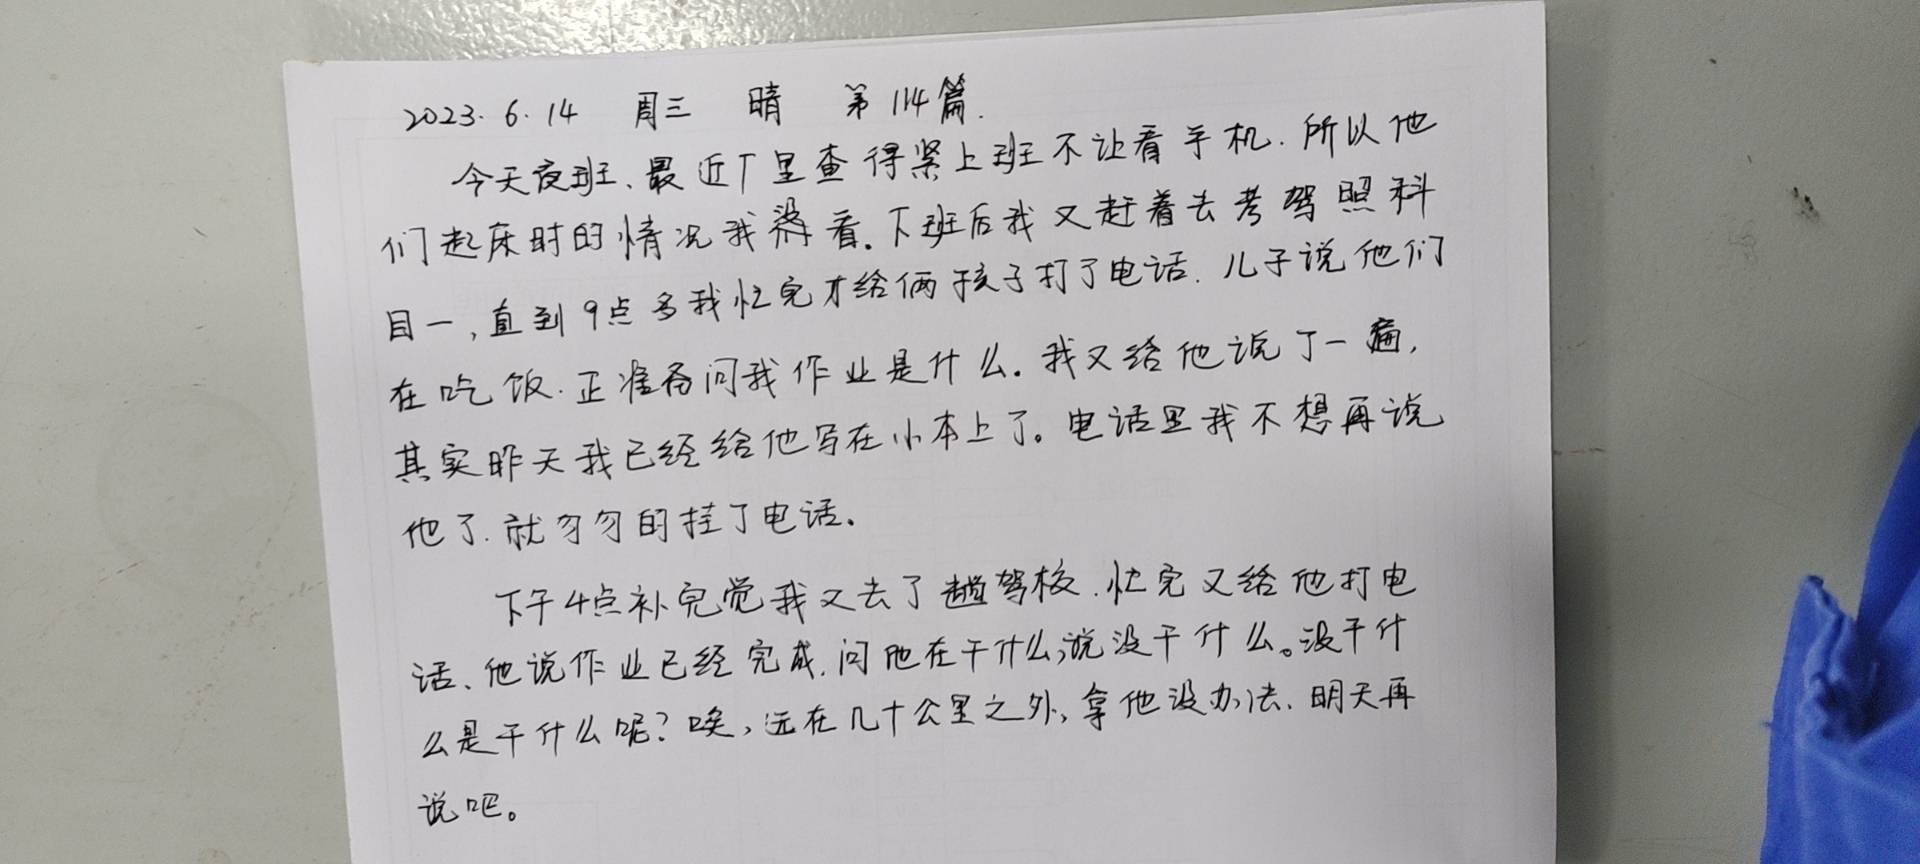 2023.6.14 周三 晴 第114篇.
今天夜班、最近厂里查得紧上班不让看手机.所以他
们起床时的情况我没看。下班后我又赶着去考驾照科
目一,直到9点多我忙完才给俩孩子打了电话.儿子说他们
在吃饭.正准备问我作业是什么。我又给他说了一遍,
其实昨天我已经给他写在小本上了。电话里我不想再说
他了.就匆匆的挂了电话。
下午4点补完觉我又去了趟驾校.忙完又给他打电
话、他说作业已经完成.问他在干什么,说没干什么。没干什
么是干什么呢?唉,远在几十公里之外,拿他没办法.明天再
说吧。